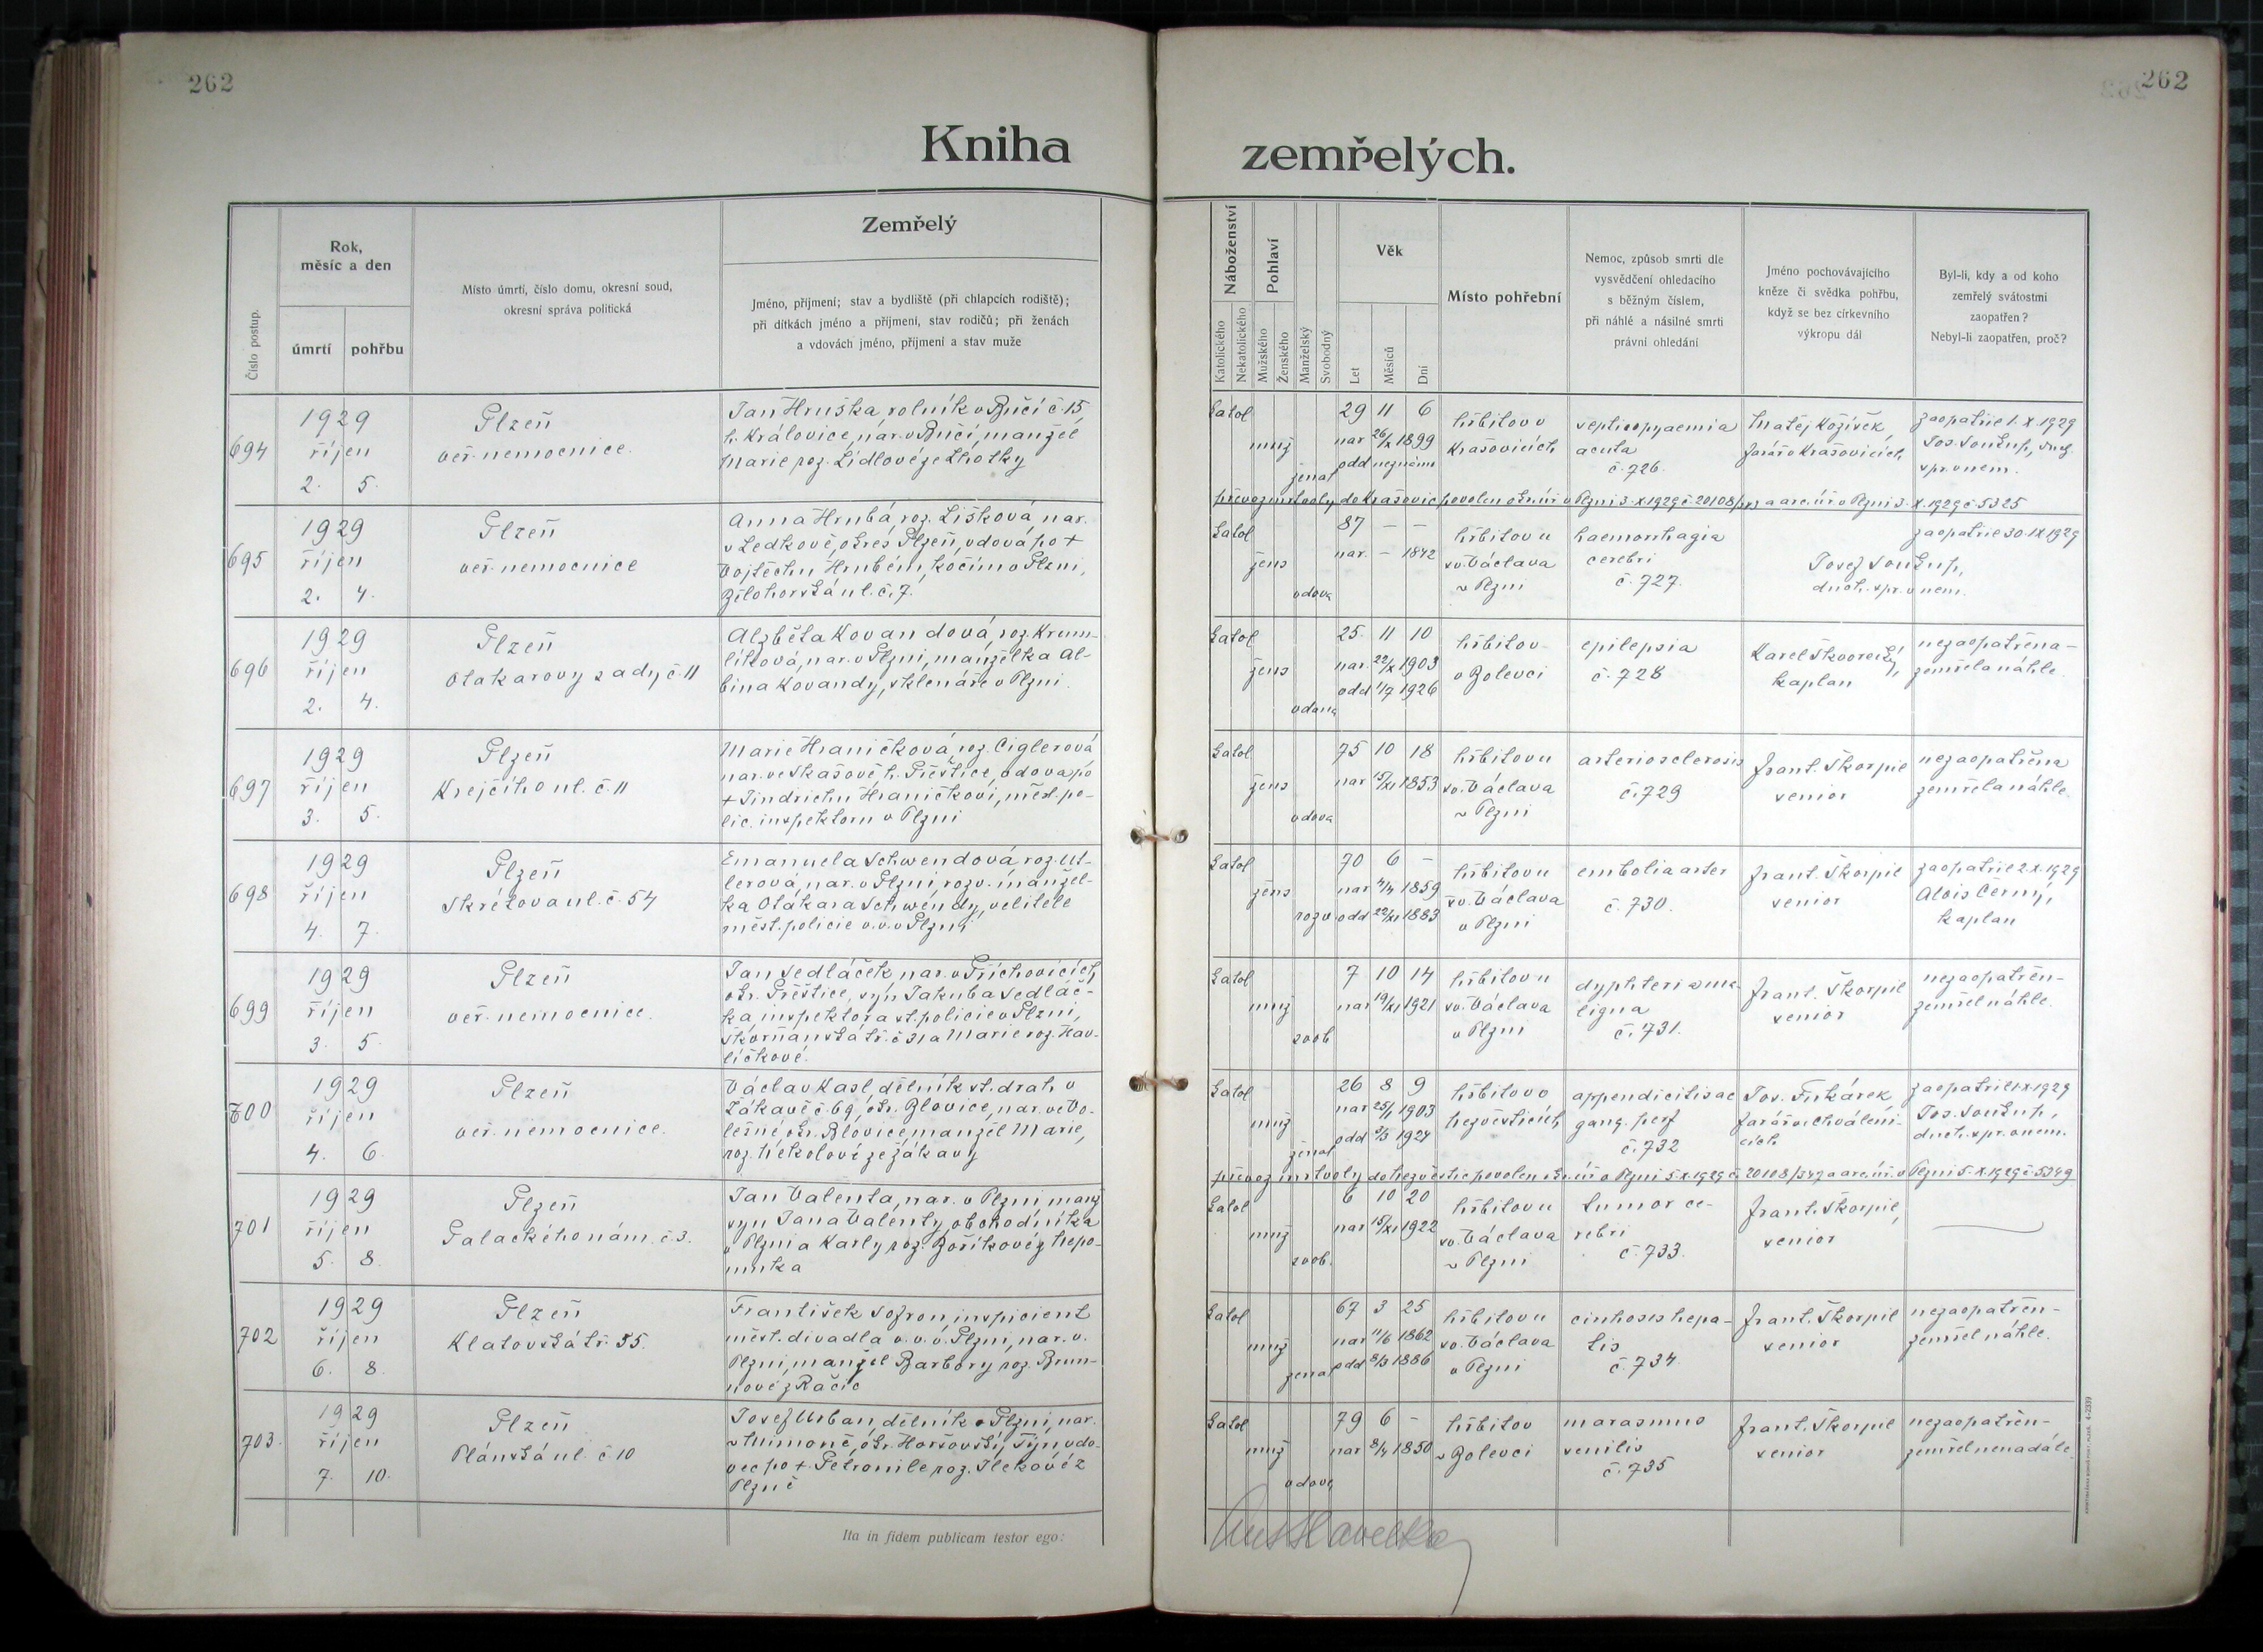 262
262
Kniha zemřelých.
Číslo postup.
Rok, měsíc a den
úmrtí
pohřbu
Místo úmrtí, číslo domu, okresní soud,
okresní správa politická
Zemřelý
Jméno, příjmení; stav a bydliště (při chlapcích rodiště);
při dítkách jméno a příjmení, stav rodičů; při ženách
a vdovách jméno, příjmení a stav muže
Náboženství
Katolického
Nekatolického
Pohlaví
Mužského
Ženského
Manželský
Svobodný
Věk
Let
Měsíců
Dní
Místo pohřební
Nemoc, způsob smrti dle
vysvědčení ohledacího
s běžným číslem,
při náhlé a násilné smrti
právní ohledání
Jméno pochovávajícího
kněze či svědka pohřbu,
když se bez církevního
výkropu dál
Byl-li, kdy a od koho
zemřelý svátostmi
zaopatřen?
Nebyl-li zaopatřen, proč?
694
1929
říjen
2. 5.
Plzeň
veř. nemocnice.
Jan Hruška rolník v Bučí č. 15,
h. Královice, nar. v Bučí, manžel
Marie roz. Lídlové ze Lhotky
katol
muž
ženat
29 11 6
nar 26/X 1899
odd neznámo
hřbitov v
Krašovicích
septicopyaemia
acuta
č. 726.
Matěj Kožíšek,
farář v Krašovicích
zaopatřil 1. X. 1929
Jos. Soukup, duch.
spr. v nem.
převoz mrtvoly do Krašovic povolen okr. úř. v Plzni 3. X. 1929 č. 20108/ a arc. úř. v Plzni 3. X. 1929 č. 5325
695
1929
říjen
2. 4.
Plzeň
veř. nemocnice
Anna Hrubá, roz. Lišková nar.
v Ledkově, okres Plzeň, vdova po +
Vojtěchu Hrubém, kočím v Plzni,
Bělohorská ul. č. 7.
katol
žens
vdova
87 — —
nar. — 1842
hřbitov u
sv. Václava
v Plzni
haemorrhagia
cerebri
č. 727.
Josef Soukup,
duch. spr. v nem.
zaopatřil 30. IX 1929
696
1929
říjen
2. 4.
Plzeň
Otakarovy sady č. 11
Alžběta Kovandová, roz. Krum-
líková, nar. v Plzni, manželka Al-
bina Kovandy, sklenáře v Plzni.
katol
žens
vdana
25. 11 10
nar. 22/X 1903
odd 1/7 1926
hřbitov
v Bolevci
epilepsia
č. 728
Karel Skvorecký,
kaplan
nezaopatřena –
zemřela náhle.
697
1929
říjen
3. 5.
Plzeň
Krejčího ul. č. 11
Marie Hraničková, roz. Ciglerová
nar. ve Skašově h. Přeštice, vdova po
+ Jindřichu Hraničkovi, měst. po-
lic. inspektoru v Plzni
katol
žens
vdova
75 10 18
nar 15/XI 1853
hřbitov u
sv. Václava
v Plzni
arteriosclerosis
č. 729
Frant. Škorpil
senior
nezaopatřena
zemřela náhle.
698
1929
říjen
4. 7.
Plzeň
Skrétova ul. č. 54
Emanuela Schwendová roz. Ut-
lerová, nar. v Plzni, rozv. manžel-
ka Otakara Schwendy, velitele
měst. policie v. v. v Plzni
katol
žens
rozv
70 6 –
nar 4/4 1859
odd 22/XI 1883
hřbitov u
sv. Václava
v Plzni
embolia arter
č. 730.
Frant. Škorpil
senior
zaopatřil 2. X. 1929
Alois Černý,
kaplan
699
1929
říjen
3. 5.
Plzeň
veř. nemocnice.
Jan Sedláček nar. v Příchovicích,
okr. Přeštice, syn Jakuba Sedláč-
ka inspektora st. policie v Plzni,
Skvrňanská tř. č 31 a Marie roz. Hav-
líčkové.
katol
muž
svob
7 10 14
nar 19/XI 1921
hřbitov u
sv. Václava
v Plzni
dyphteria ma-
ligna
č. 731.
Frant. Škorpil
senior
nezaopatřen –
zemřel náhle.
700
1929
říjen
4. 6.
Plzeň
veř. nemocnice.
Václav Kasl dělník st. drah v
Žákavě č. 69, okr. Blovice, nar. ve Vo-
lešné okr. Blovice, manžel Marie,
roz. Hékolové ze Žákavy
katol
muž
ženat
26 8 9
nar 25/1 1903
odd 3/3 1924
hřbitov v
Nezvěsticích
appendicitis ac
gang. perf
č. 732
Jos. Fukárek,
farář ve Chválenicích
zaopatřil 1. X. 1929
Jos. Soukup,
duch. spr. v nem.
převoz mrtvoly do Nezvěstic povolen okr. úř. v Plzni 5. X. 1929 č. 20108/347 a arc. úř. v Plzni 5. X. 1929 č. 5349
701
1929
říjen
5. 8.
Plzeň
Palackého nám. č. 3.
Jan Valenta, nar. v Plzni, manž
syn Jana Valenty, obchodníka
v Plzni a Karly roz. Boříkové z Nepo-
muka
katol
muž
svob.
6 10 20
nar 15/XI 1922
hřbitov u
sv. Václava
v Plzni
tumor ce-
rebri
č. 733.
Frant. Škorpil,
senior
702
1929
říjen
6. 8.
Plzeň
Klatovská tř. 55.
František Sofron, inspicient
měst. divadla v. v. v. Plzni, nar. v.
Plzni, manžel Barbory roz. Brun-
nové z Račic
katol
muž
ženat
67 3 25
nar 11/6 1862
odd 8/3 1886
hřbitov u
sv. Václava
v Plzni
cirrhosis hepa-
tis
č. 734
Frant. Škorpil
senior
nezaopatřen –
zemřel náhle.
703.
1929
říjen
7. 10.
Plzeň
Plánská ul. č 10
Josef Urban, dělník v Plzni, nar.
v Mimoně, okr. Horšovský Týn, vdo-
vec po +. Petronile roz. Ilekové z
Plzně
katol
muž
vdovec
79 6 –
nar 8/4 1850
hřbitov
v Bolevci
marasmus
senilis
č. 735
Frant. Škorpil
senior
nezaopatřen –
zemřel nenadále
Ita in fidem publicam testor ego: